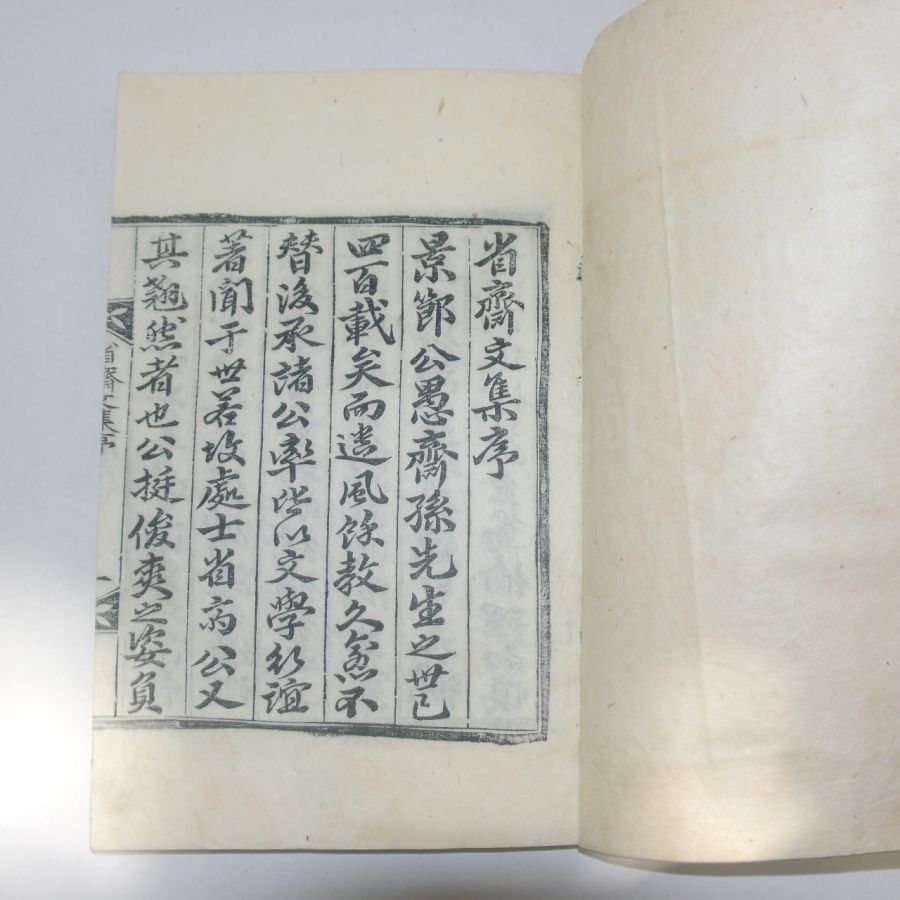 省齋文集序
景節公愚齋孫先生之世已
四百載矣而遺風餘教久愈不
替後承諸公率皆以文學行誼
著聞于世若故處士省斋公又
其翹然者也公挺俊爽之姿負
省齋文集序